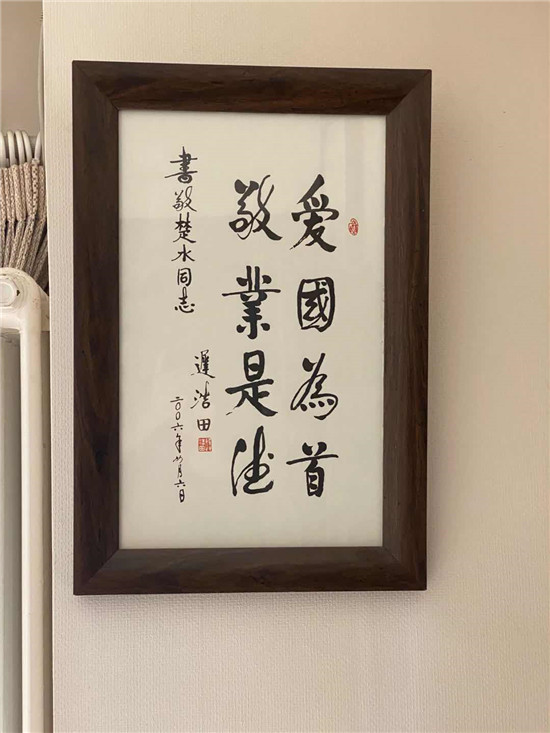 爱國為首
敬業是德
書敬楚水同志
遲浩田
二〇〇六年月六日